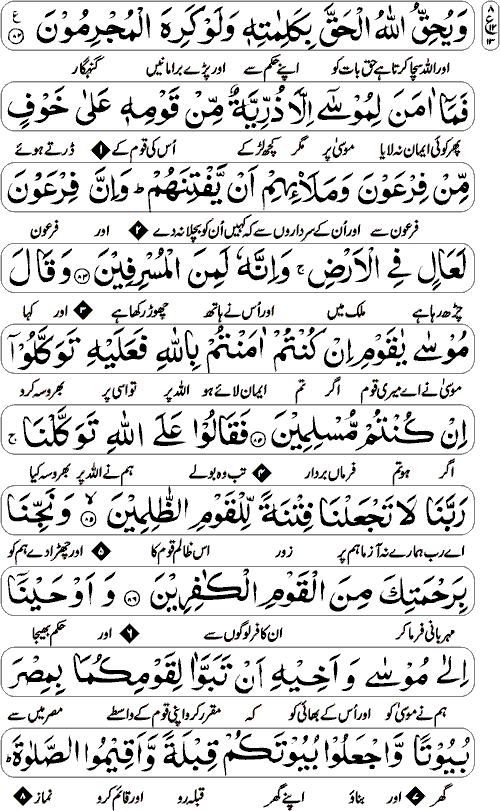 وَيُحِقُّ اللّٰهُ الْحَقَّ بِكَلِمٰتِهٖ وَلَوْ كَرِهَ الْمُجْرِمُوْنَ ﴿۸۲﴾
اور اللہ سچا کرتا ہے حق بات کو اپنے حکم سے اور پڑے برا مانیں گنہگار
فَمَآ اٰمَنَ لِمُوْسٰٓى اِلَّا ذُرِّيَّةٌ مِّنْ قَوْمِهٖ عَلٰى خَوْفٍ
پھر کوئی ایمان نہ لایا موسیٰ پر مگر کچھ لڑکے ۱ اُس کی قوم کے ڈرتے ہوئے
مِّنْ فِرْعَوْنَ وَمَلَا۟ئِهِمْ اَنْ يَّفْتِنَهُمْ ؕ وَاِنَّ فِرْعَوْنَ
فرعون سے اور اُن کے سرداروں سے کہ کہیں اُن کو بچلا نہ دے ۲ اور فرعون
لَعَالٍ فِى الْاَرْضِ ۚ وَاِنَّهٗ لَمِنَ الْمُسْرِفِيْنَ ﴿۸۳﴾ وَقَالَ
چڑھ رہا ہے ملک میں اور اُس نے ہاتھ چھوڑ رکھا ہے ۳ اور کہا
مُوْسٰى يٰقَوْمِ اِنْ كُنْتُمْ اٰمَنْتُمْ بِاللّٰهِ فَعَلَيْهِ تَوَكَّلُوْٓا
موسیٰ نے اے میری قوم اگر تم ایمان لائے ہو اللہ پر تو اسی پر بھروسہ کرو
اِنْ كُنْتُمْ مُّسْلِمِيْنَ ﴿۸۴﴾ فَقَالُوْا عَلَى اللّٰهِ تَوَكَّلْنَا ۚ
اگر ہو تم فرماں بردار ۴ تب وہ بولے ہم نے اللہ پر بھروسہ کیا
رَبَّنَا لَا تَجْعَلْنَا فِتْنَةً لِّلْقَوْمِ الظّٰلِمِيْنَ ﴿۸۵﴾ۙ وَنَجِّنَا
اے رب ہمارے نہ آزما ہم پر زور اس ظالم قوم کا ۵ اور چھڑا دے ہم کو
بِرَحْمَتِكَ مِنَ الْقَوْمِ الْكٰفِرِيْنَ ﴿۸۶﴾ وَاَوْحَيْنَآ
مہربانی فرما کر ان کافر لوگوں سے ۶ اور حکم بھیجا
اِلٰى مُوْسٰى وَاَخِيْهِ اَنْ تَبَوَّاٰ لِقَوْمِكُمَا بِمِصْرَ
ہم نے موسیٰ کو اور اُس کے بھائی کو کہ مقرر کرو اپنی قوم کے واسطے مصر میں سے
بُيُوْتًا وَّاجْعَلُوْا بُيُوْتَكُمْ قِبْلَةً وَّاَقِيْمُوا الصَّلٰوةَ ؕ
گھر ۷ اور بناؤ اپنے گھر قبلہ رو اور قائم کرو نماز ۸